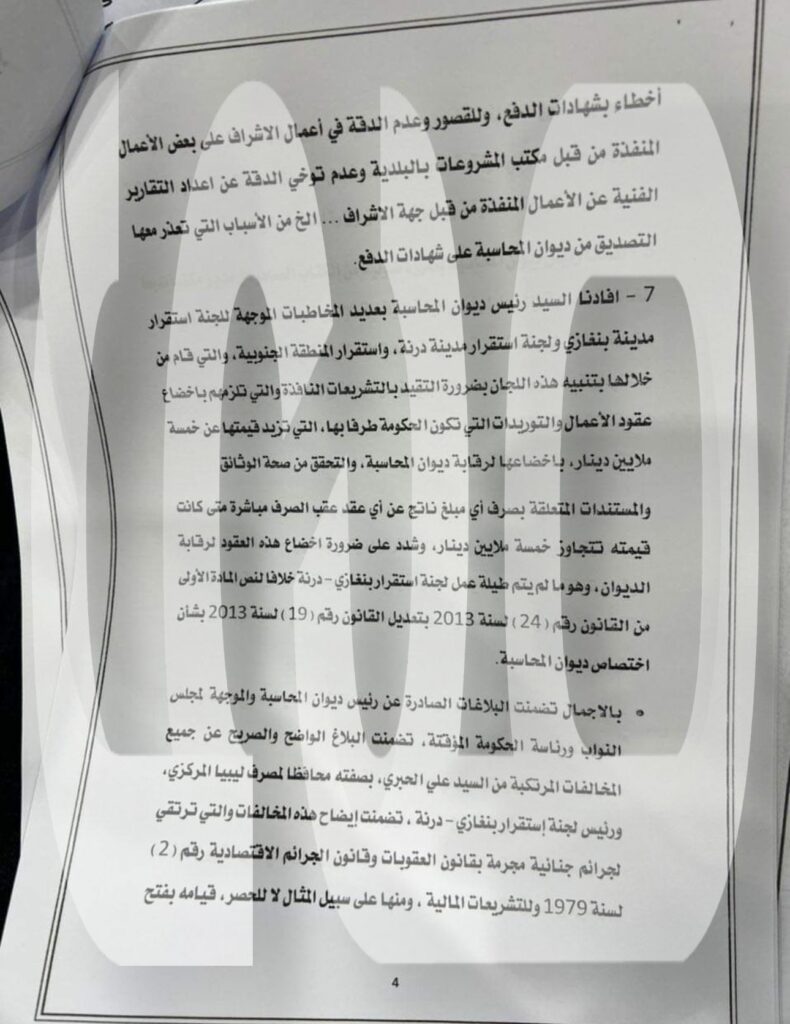 أخطاء بشهادات الدفع، وللقصور وعدم الدقة في أعمال الاشراف على بعض الأعمال
المنفذة من قبل مكتب المشروعات بالبلدية وعدم توخي الدقة عن اعداد التقارير
الفنية عن الأعمال المنفذة من قبل جهة الاشراف ... الخ من الأسباب التي تعذر معها
التصديق من ديوان المحاسبة على شهادات الدفع.
7 - افادنا السيد رئيس ديوان المحاسبة بعديد المخاطبات الموجهة للجنة استقرار
مدينة بنغازي ولجنة استقرار مدينة درنة، واستقرار المنطقة الجنوبية، والتي قام من
خلالها بتنبيه هذه اللجان بضرورة التقيد بالتشريعات النافذة والتي تلزمهم باخضاع
عقود الأعمال والتوريدات التي تكون الحكومة طرفا بها، التي تزيد قيمتها عن خمسة
ملايين دينار، باخضاعها لرقابة ديوان المحاسبة، والتحقق من صحة الوثائق
والمستندات المتعلقة بصرف أي مبلغ ناتج عن أي عقد عقب الصرف مباشرة متى كانت
قيمته تتجاوز خمسة ملايين دينار، وشدد على ضرورة اخضاع هذه العقود لرقابة
الديوان، وهو ما لم يتم طيلة عمل لجنة استقرار بنغازي - درنة خلافا لنص المادة الأولى
من القانون رقم (24) لسنة 2013 بتعديل القانون رقم (19) لسنة 2013 بشأن
اختصاص ديوان المحاسبة.
• بالاجمال تضمنت البلاغات الصادرة عن رئيس ديوان المحاسبة والموجهة لمجلس
النواب ورئاسة الحكومة المؤقتة، تضمنت البلاغ الواضح والصريح عن جميع
المخالفات المرتكبة من السيد علي الحبري، بصفته محافظا لمصرف ليبيا المركزي،
ورئيس لجنة إستقرار بنغازي - درنة ، تضمنت إيضاح هذه المخالفات والتي ترتقي
لجرائم جنائية مجرمة بقانون العقوبات وقانون الجرائم الاقتصادية رقم (2)
لسنة 1979 وللتشريعات المالية ، ومنها على سبيل المثال لا للحصر، قيامه بفتح
4